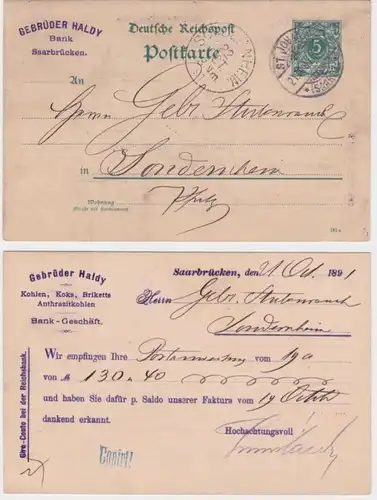 GEBRÜDER HALDY
Bank
Saarbrücken.
Deutsche Reichspost
Postkarte
5
ST. JOH
An
Herrn Gebr. Stutenrauch
in Sondernheim
Pfalz
Wohnung
(Straße und Hausnummer)
Gebrüder Haldy
Kohlen, Koks, Briketts
Anthrazitkohlen
Bank-Geschäft.
Giro-Conto bei der Reichsbank.
Saarbrücken, den 21 Oct. 1891
Herrn Gebr. Stutenrauch
Sondernheim
Wir empfingen Ihre Postanweisung vom 19 a
von M 130.40
und haben Sie dafür p. Saldo unserer Faktura vom 17 Octob
dankend erkannt.
Hochachtungsvoll
Copirt!